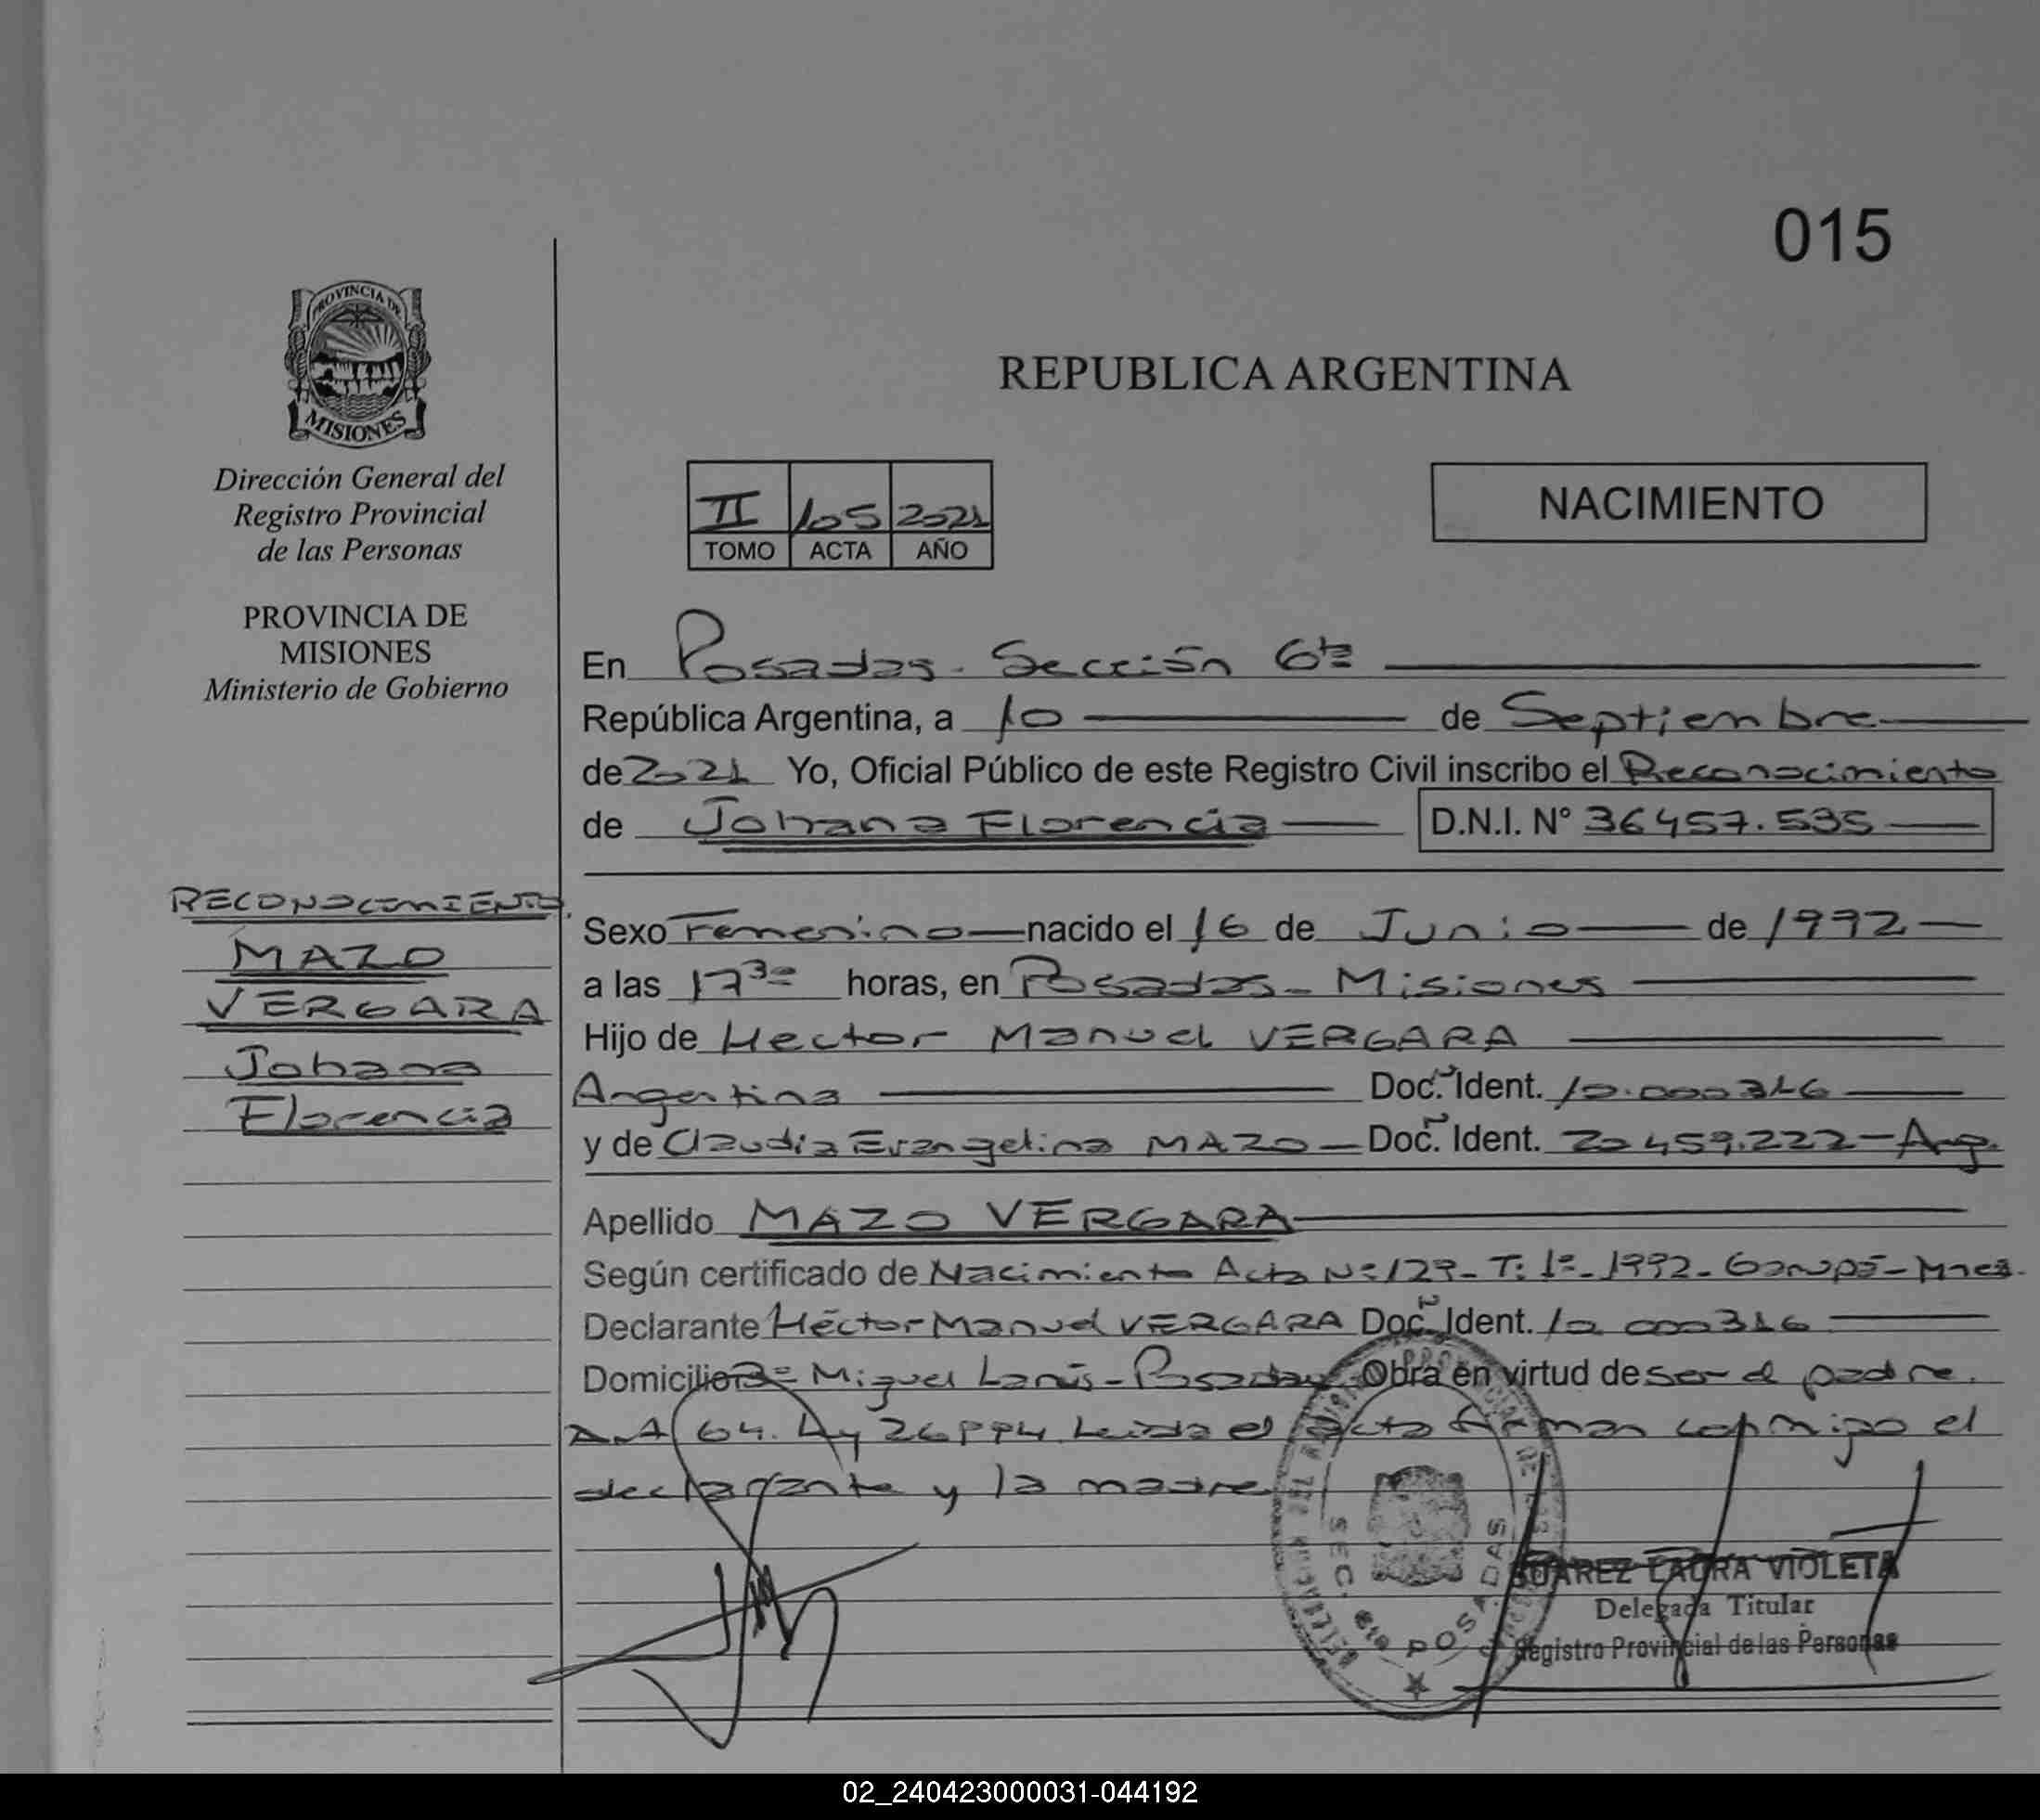 015
PROVINCIA DE
MISIONES
Dirección General del
Registro Provincial
de las Personas
PROVINCIA DE
MISIONES
Ministerio de Gobierno
REPUBLICA ARGENTINA
II 105 2021
TOMO ACTA AÑO
NACIMIENTO
En Posadas - Sección 6ta
República Argentina, a 10 de Septiembre
de 2021 Yo, Oficial Público de este Registro Civil inscribo el Reconocimiento
de Johana Florencia D.N.I. N° 36457.535
RECONOCIMIENTO
MAZO
VERGARA
Johana
Florencia
Sexo Femenino nacido el 16 de Junio de 1992
a las 17 30 horas, en Posadas - Misiones
Hijo de Hector Manuel VERGARA
Argentina Doc. Ident. 10.000316
y de Claudia Evangelina MAZO Doc. Ident. 20459.222 - Arg.
Apellido MAZO VERGARA
Según certificado de Nacimiento Acta Nº 129 - T: 1º - 1992 - Garupá - Mnes.
Declarante Héctor Manuel VERGARA Doc. Ident. 10.000316
Domicilio Bº Miguel Lanús - Posadas Obra en virtud de ser el padre.
Art 64. Ley 26994 Leida el acta firman conmigo el
declarante y la madre
SEC. 6ta POSADAS
SUAREZ LAURA VIOLETA
Delegada Titular
Registro Provincial de las Personas
02_240423000031-044192